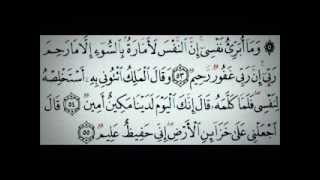 وَمَا أُبَرِّئُ نَفْسِي إِنَّ النَّفْسَ لَأَمَّارَةٌ بِالسُّوءِ إِلَّا مَا رَحِمَ
رَبِّي إِنَّ رَبِّي غَفُورٌ رَحِيمٌ ٥٣ وَقَالَ الْمَلِكُ ائْتُونِي بِهِ أَسْتَخْلِصْهُ
لِنَفْسِي فَلَمَّا كَلَّمَهُ قَالَ إِنَّكَ الْيَوْمَ لَدَيْنَا مَكِينٌ أَمِينٌ ٥٤ قَالَ
اجْعَلْنِي عَلَى خَزَائِنِ الْأَرْضِ إِنِّي حَفِيظٌ عَلِيمٌ ٥٥